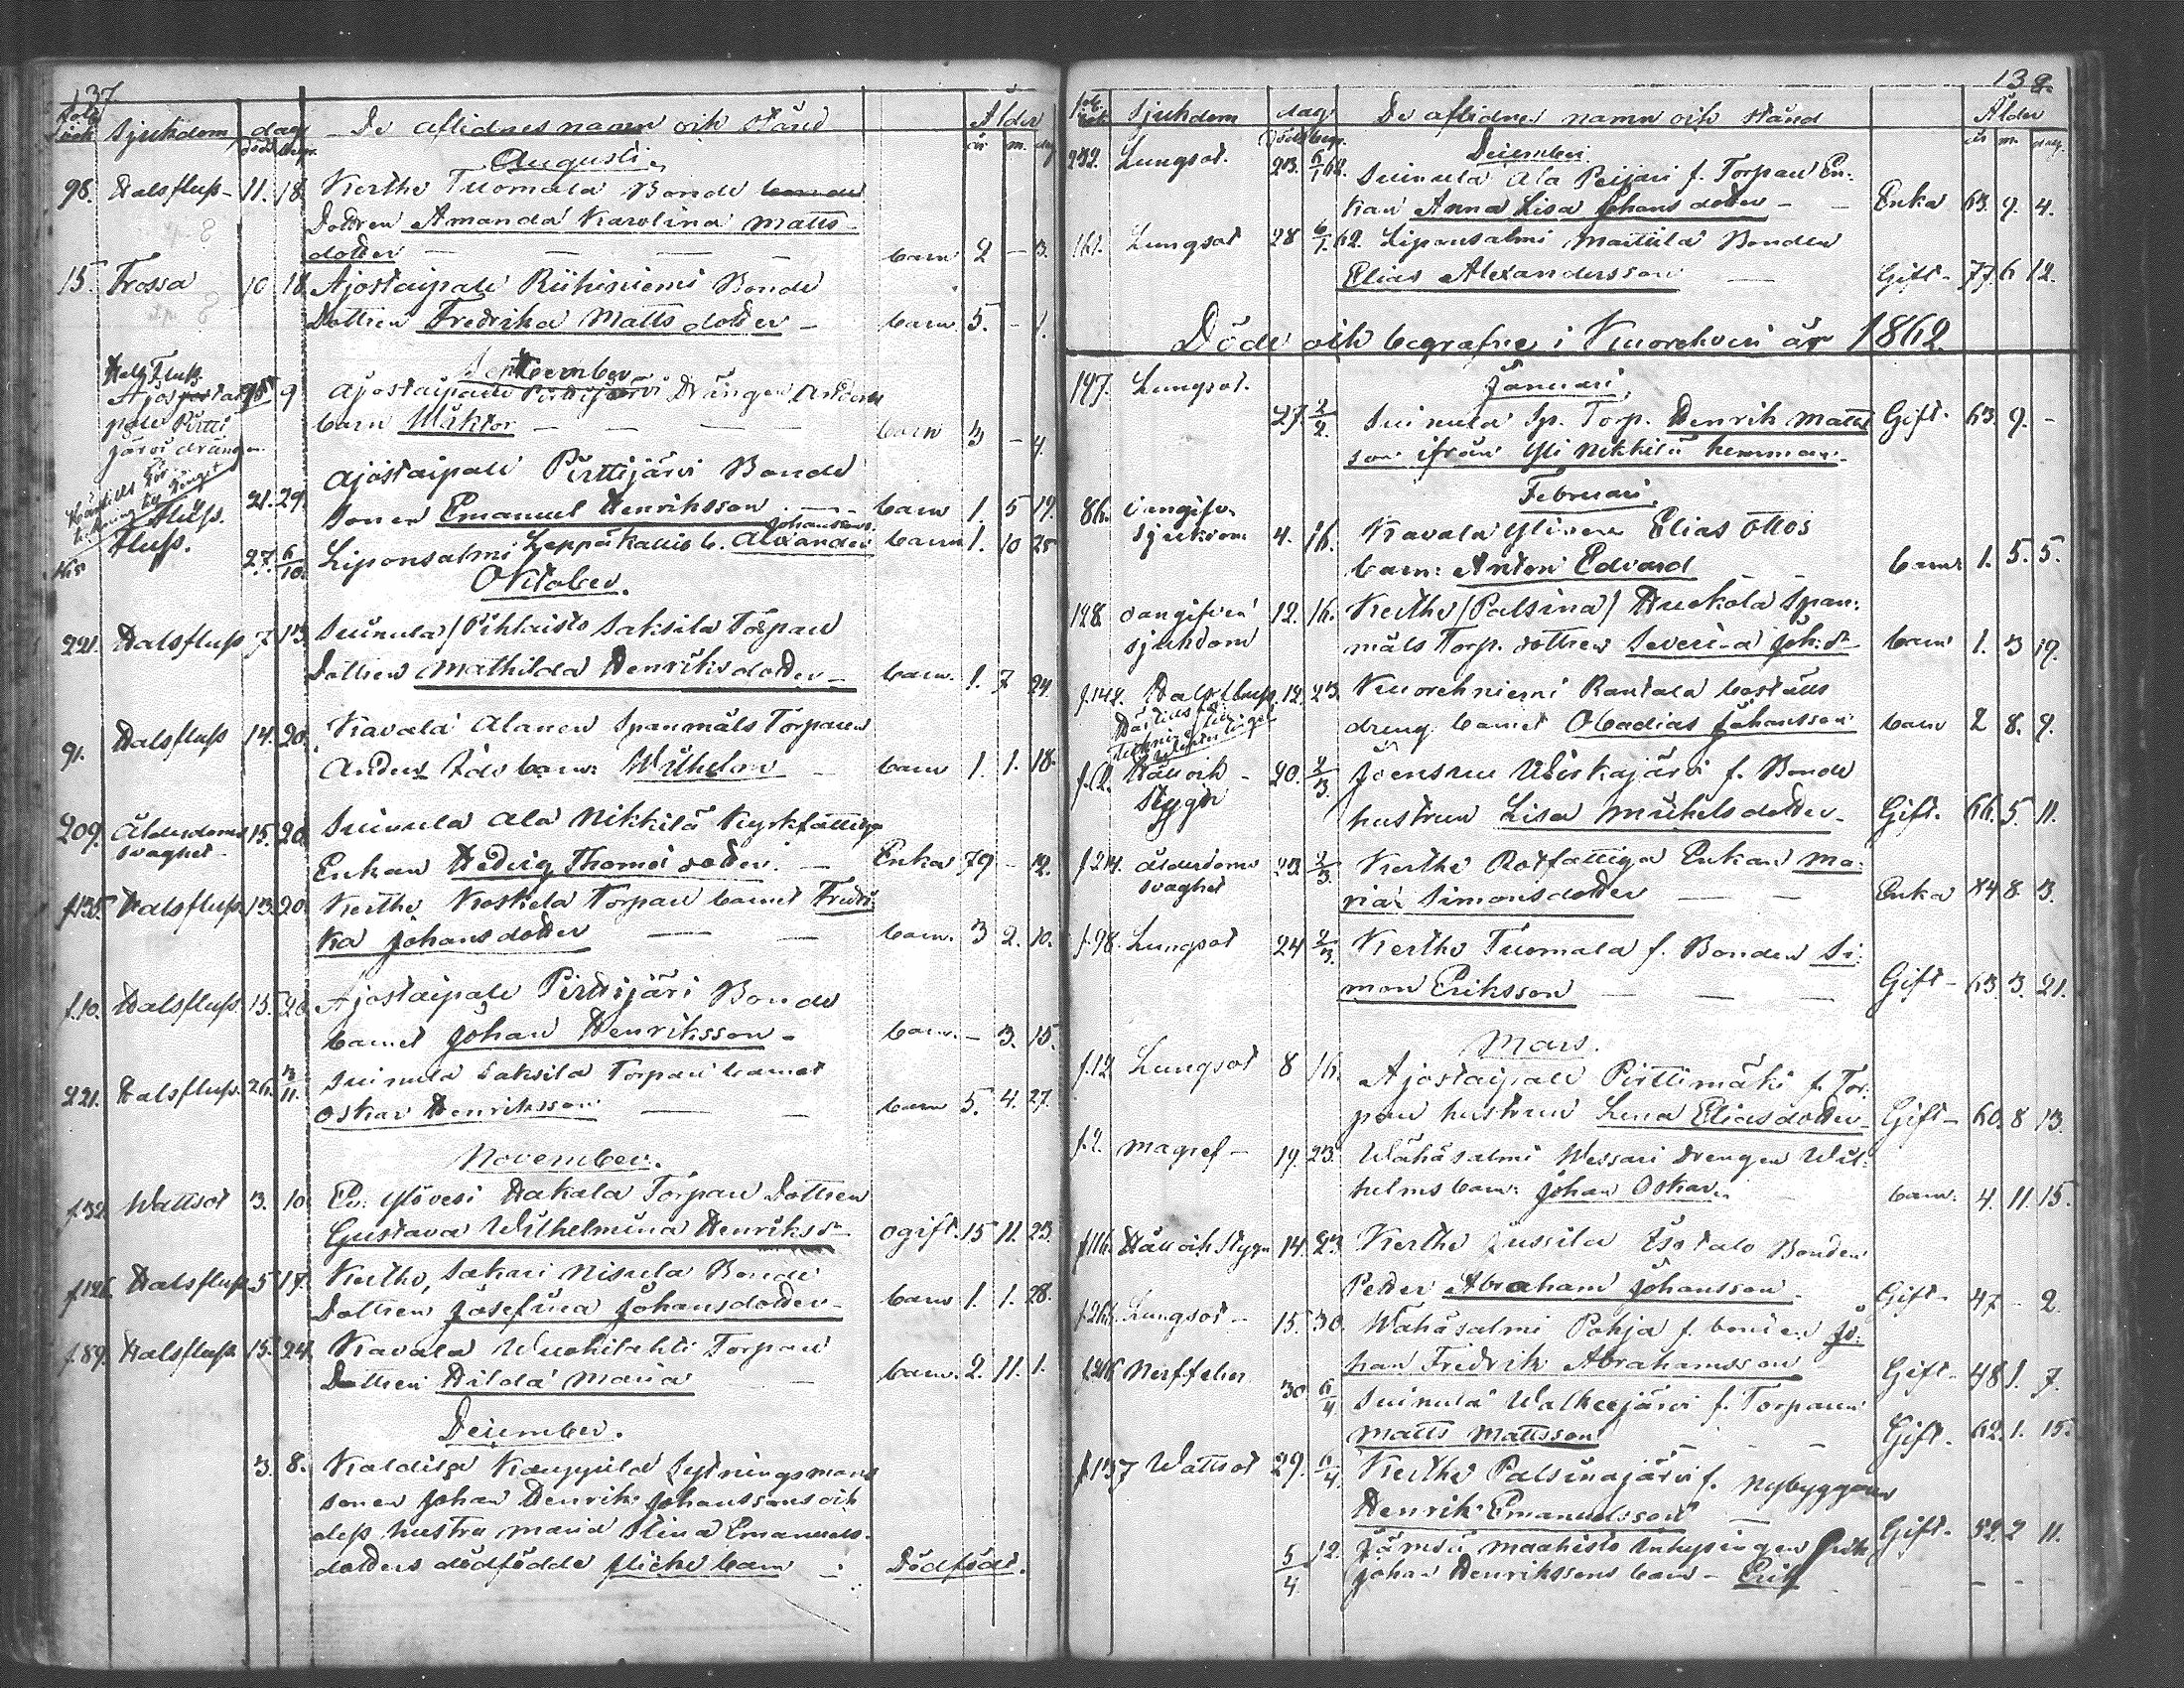 137
Sjukdom dag De aflidnes namn och stånd Ålder
död begr. år m. dag
Augusti.
98. Halsfluss 11. 18. Kertke Tuomala Bonde
Dottren Amanda Karolina Matts
dotter barn 2 - 3.
15. Trossa 10 18. Ajostaipale Riihiniemi Bonde
Dottren Fredrika Mattsdotter barn 5. - 1.
September
Hals Fluss 9 Ajostaipale Pirttijärvi Drängen Anders
barn Wiktor barn 3 - 4.
Ajostaipale Pirttijärvi Bonde
Fluss. 21. 29. Sonen Emanuel Henriksson barn 1. 5 19.
Fluss. 27. 6/10. Liponsalmi Leppäkallio b. Alexander Johansson barn 1. 10 25
Oktober.
221. Halsfluss 7 13. Suinula / Pihlaisto Saksila Torpare
Dottren Mathilda Henriksdotter barn. 1. 7 24.
91. Halsfluss 14. 20. Kavala Alanen Spanmåls Torparen
Anders barn: Wilhelm barn 1. 1. 18.
209. Ålderdoms svaghet 15. 20. Suinula Ala Nikkilä Kyrkfattiga
Enkan Hedvig Thomædotter. Enka 79 - 12.
f.135. Halsfluss 13. 20. Kertke Koskela Torpare barnet Fredri
ka Johansdotter barn. 3 2. 10.
f.10. Halsfluss. 15. 20. Ajostaipale Pirttijäri Bonde
barnet Johan Henriksson barn. - 3. 15.
221. Halsfluss. 26. 3/11. Suinula Saksila Torpare barnet
Oskar Henriksson barn 5. 4. 27.
November.
f.32. Wattsot 3. 10. Ylövesi Hakala Torpare Dottren
Gustava Wilhelmina Henriksdr ogift. 15 11. 23.
f.126. Halsfluss 5 17. Kertke, Sakari Nisula Bonde
Dottren Josefina Johansdotter barn 1. 1. 28.
f.89. Halsfluss 15. 24. Kavala Wuohilahti Torpare
Dottren Hilda Maria barn. 2. 11. 1.
December.
3. 8. Kaldila Kauppila Sytningsmans
sonen Johan Henrik Johanssons och
dess hustru Maria Stina Emanuels-
dotters dödfödde flicke barn Dödfödt.
Sjukdom dag De aflidnes namn och stånd Ålder
död begr. år m. dag.
December.
232. Lungsot. 23. 6/1 62. Suinula Ala Peijari f. Torpare En-
kan Anna Lisa Johans dotter Enka 63. 9. 4.
161. Lungsot 28 6/1. 62. Liponsalmi Mattila Bonden
Elias Alexandersson Gift. 77. 6 12.
Döde och begrafne i Kuorehvesi år 1862.
Januari.
197. Lungsot. 27. 2/2. Suinula Sp. Torp. Henrik Matts Gift. 63. 9. -
son ifrån Yli Nikkilä hemman.
Februari.
86. oangifven sjukdom 4. 16. Kavala Ylinen Elias Ottos
barn: Anton Edvard barn. 1. 5. 5.
128 oangifven sjukdom 12. 16. Kertke (Palsina) Huckola Span-
måls Torp. dottren Severina Joh:dr barn 1. 3 19.
f.142. Halsfluss 12. 23. Kuorehniemi Rantala beställs
dreng barnet Obadias Johansson barn 2 8. 9.
f.12. Håll och Stygn 20. 2/3. Joensuu f. Bonde
hustrun Lisa Michelsdotter. Gift. 66. 5. 11.
f.214. Ålderdoms svaghet 23. 2/3. Kertke Rotfattiga Enkan Ma-
ria Simonsdotter Enka 84 8. 3.
f.98. Lungsot 24 2/3. Kertke Tuomala f. Bonden Si-
mon Eriksson Gift 63. 3. 21.
Mars.
f.12 Lungsot 8 16. Ajostaipale Pirttimäki f. Tor-
pare hustrun Lena Eliasdotter Gift 60. 8 13.
f.2. Magref 19. 23. Wähäsalmi Wessari drengen Wil-
helms barn: Johan Oskar. barn. 4. 11. 15.
f.116. Håll och Stygn 14. 23. Kertke Jussila Isotalo Bonden
Petter Abraham Johansson. Gift 47 - 2.
Lungsot 15. 30. Wähäsalmi Pohja f. bonden Jo-
han Fredrik Abrahamsson Gift 48 1. 7.
Nerffeber 30. 6/4 Suinula Walkeejärvi f. Torparen
Matts Mattsson Gift. 62. 1. 15.
f.137 Wattsot 29. 6/4. Kertke Palsinajärvi f. Nybyggaren
Henrik Emanuelsson Gift. 52. 2 11.
5/4 12. Jämsä Maahisto Inhysingen
Johan Henrikssons barn - Erik - - -